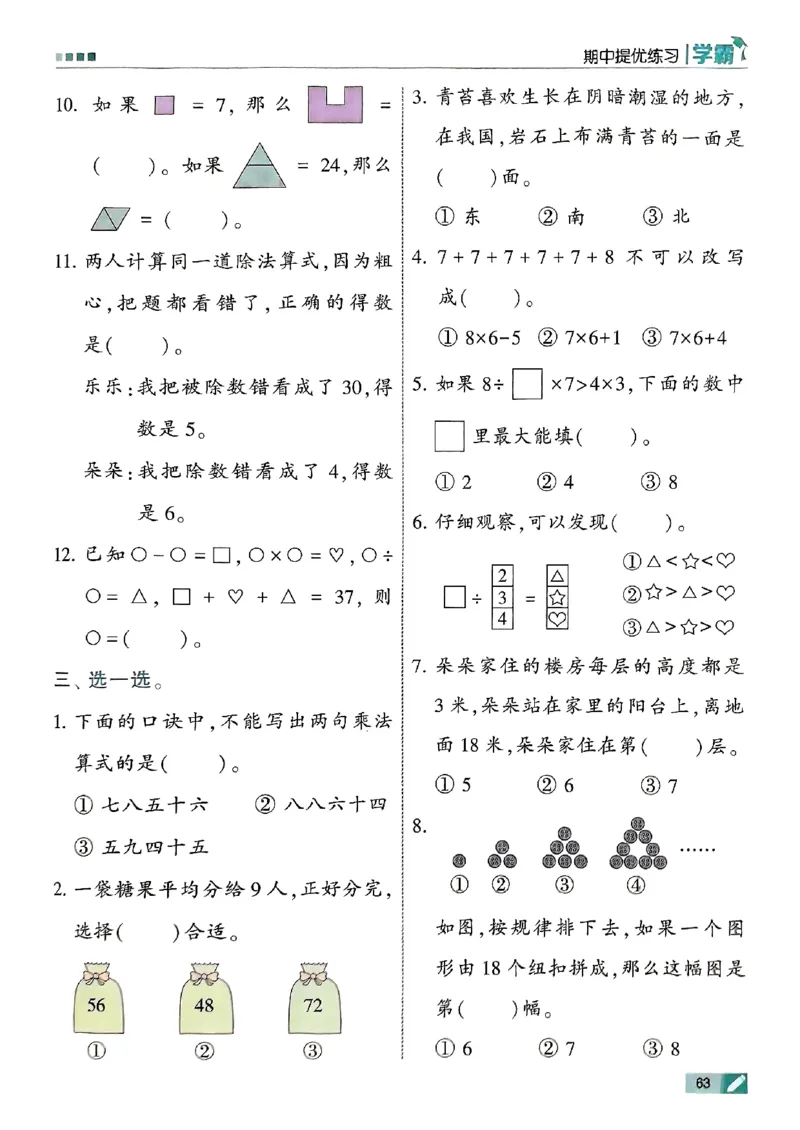 期中提优练习 学霸
10. 如果 = 7, 那么 =
( )。如果 = 24,那么
= ( )。
11. 两人计算同一道除法算式,因为粗
心,把题都看错了,正确的得数
是( )。
乐乐:我把被除数错看成了 30,得
数是 5。
朵朵:我把除数错看成了 4,得数
是 6。
12. 已知○-○=□,○×○=♡,○÷
○=△,□+♡+△=37,则
○=( )。
三、选一选。
1. 下面的口诀中,不能写出两句乘法
算式的是( )。
① 七八五十六 ② 八八六十四
③ 五九四十五
2. 一袋糖果平均分给 9 人,正好分完,
选择( )合适。
56 48 72
① ② ③
3. 青苔喜欢生长在阴暗潮湿的地方,
在我国,岩石上布满青苔的一面是
( )面。
① 东 ② 南 ③ 北
4. 7+7+7+7+7+8 不可以改写
成( )。
① 8×6-5 ② 7×6+1 ③ 7×6+4
5. 如果 8÷□×7>4×3,下面的数中
□里最大能填( )。
① 2 ② 4 ③ 8
6. 仔细观察,可以发现( )。
2 △ ①△<☆<♡
□÷ 3 = ☆ ②☆>△>♡
4 ♡ ③△>☆>♡
7. 朵朵家住的楼房每层的高度都是
3 米,朵朵站在家里的阳台上,离地
面 18 米,朵朵家住在第( )层。
① 5 ② 6 ③ 7
8. ……
① ② ③ ④
如图,按规律排下去,如果一个图
形由 18 个纽扣拼成,那么这幅图是
第( )幅。
① 6 ② 7 ③ 8
63